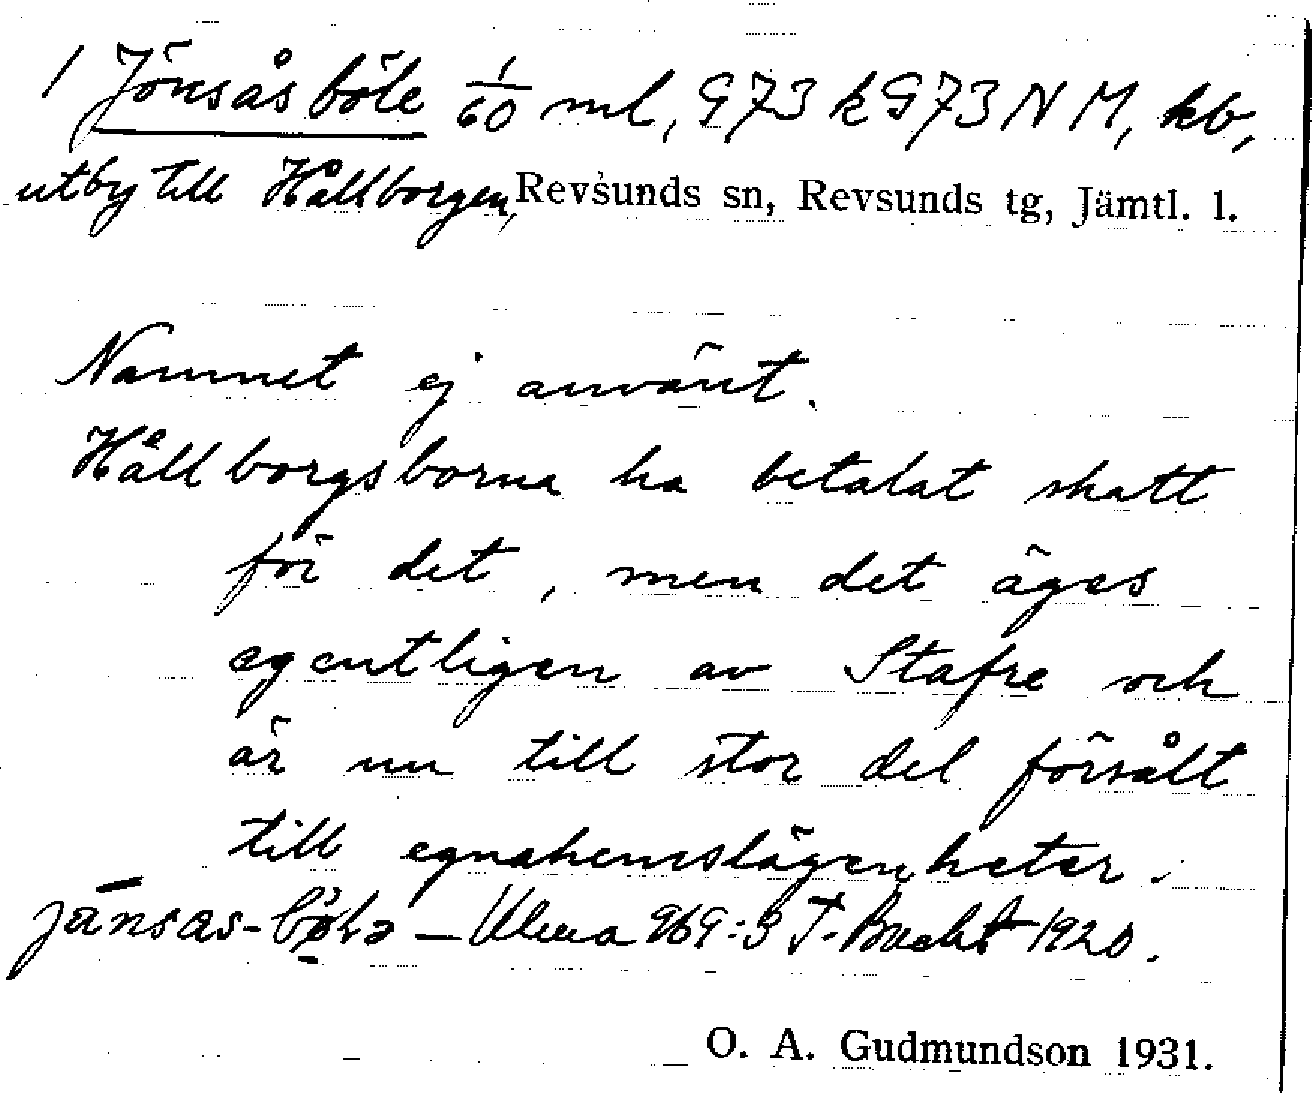 1 Jönsåsböle 1/60 ml, G73 k G73 NM, kb,
utby till Hållborgen, Revsunds sn, Revsunds tg, Jämtl. l.
Namnet ej använt.
Hållborgsborna ha betalat skatt
för det, men det äges
egentligen av Stafre och
är nu till stor del försålt
till egnahemslägenheter.
Ulma 969:3 T. Bucht 1920.
O. A. Gudmundson 1931.